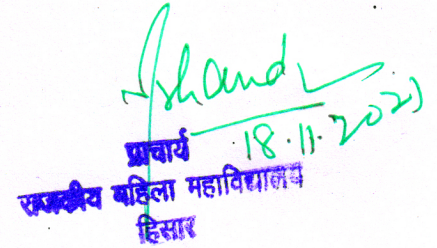 18.11.202)
प्राचार्य
राजकीय महिला महाविद्यालय
हिसार